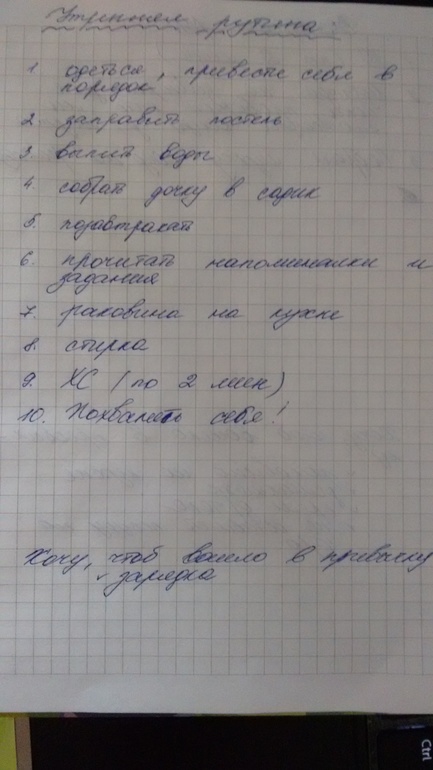 Утренняя рутина.
1 одеться, привести себя в
порядок
2. заправить постель
3. выпить воды
4. собрать дочку в садик
5. позавтракать
6. прочитать напоминалки и
задания
7. раковина на кухне
8. стирка
9. ХС (по 2 мин)
10. Похвалить себя!
Хочу, чтоб вошло в привычку
зарядка
Ctrl